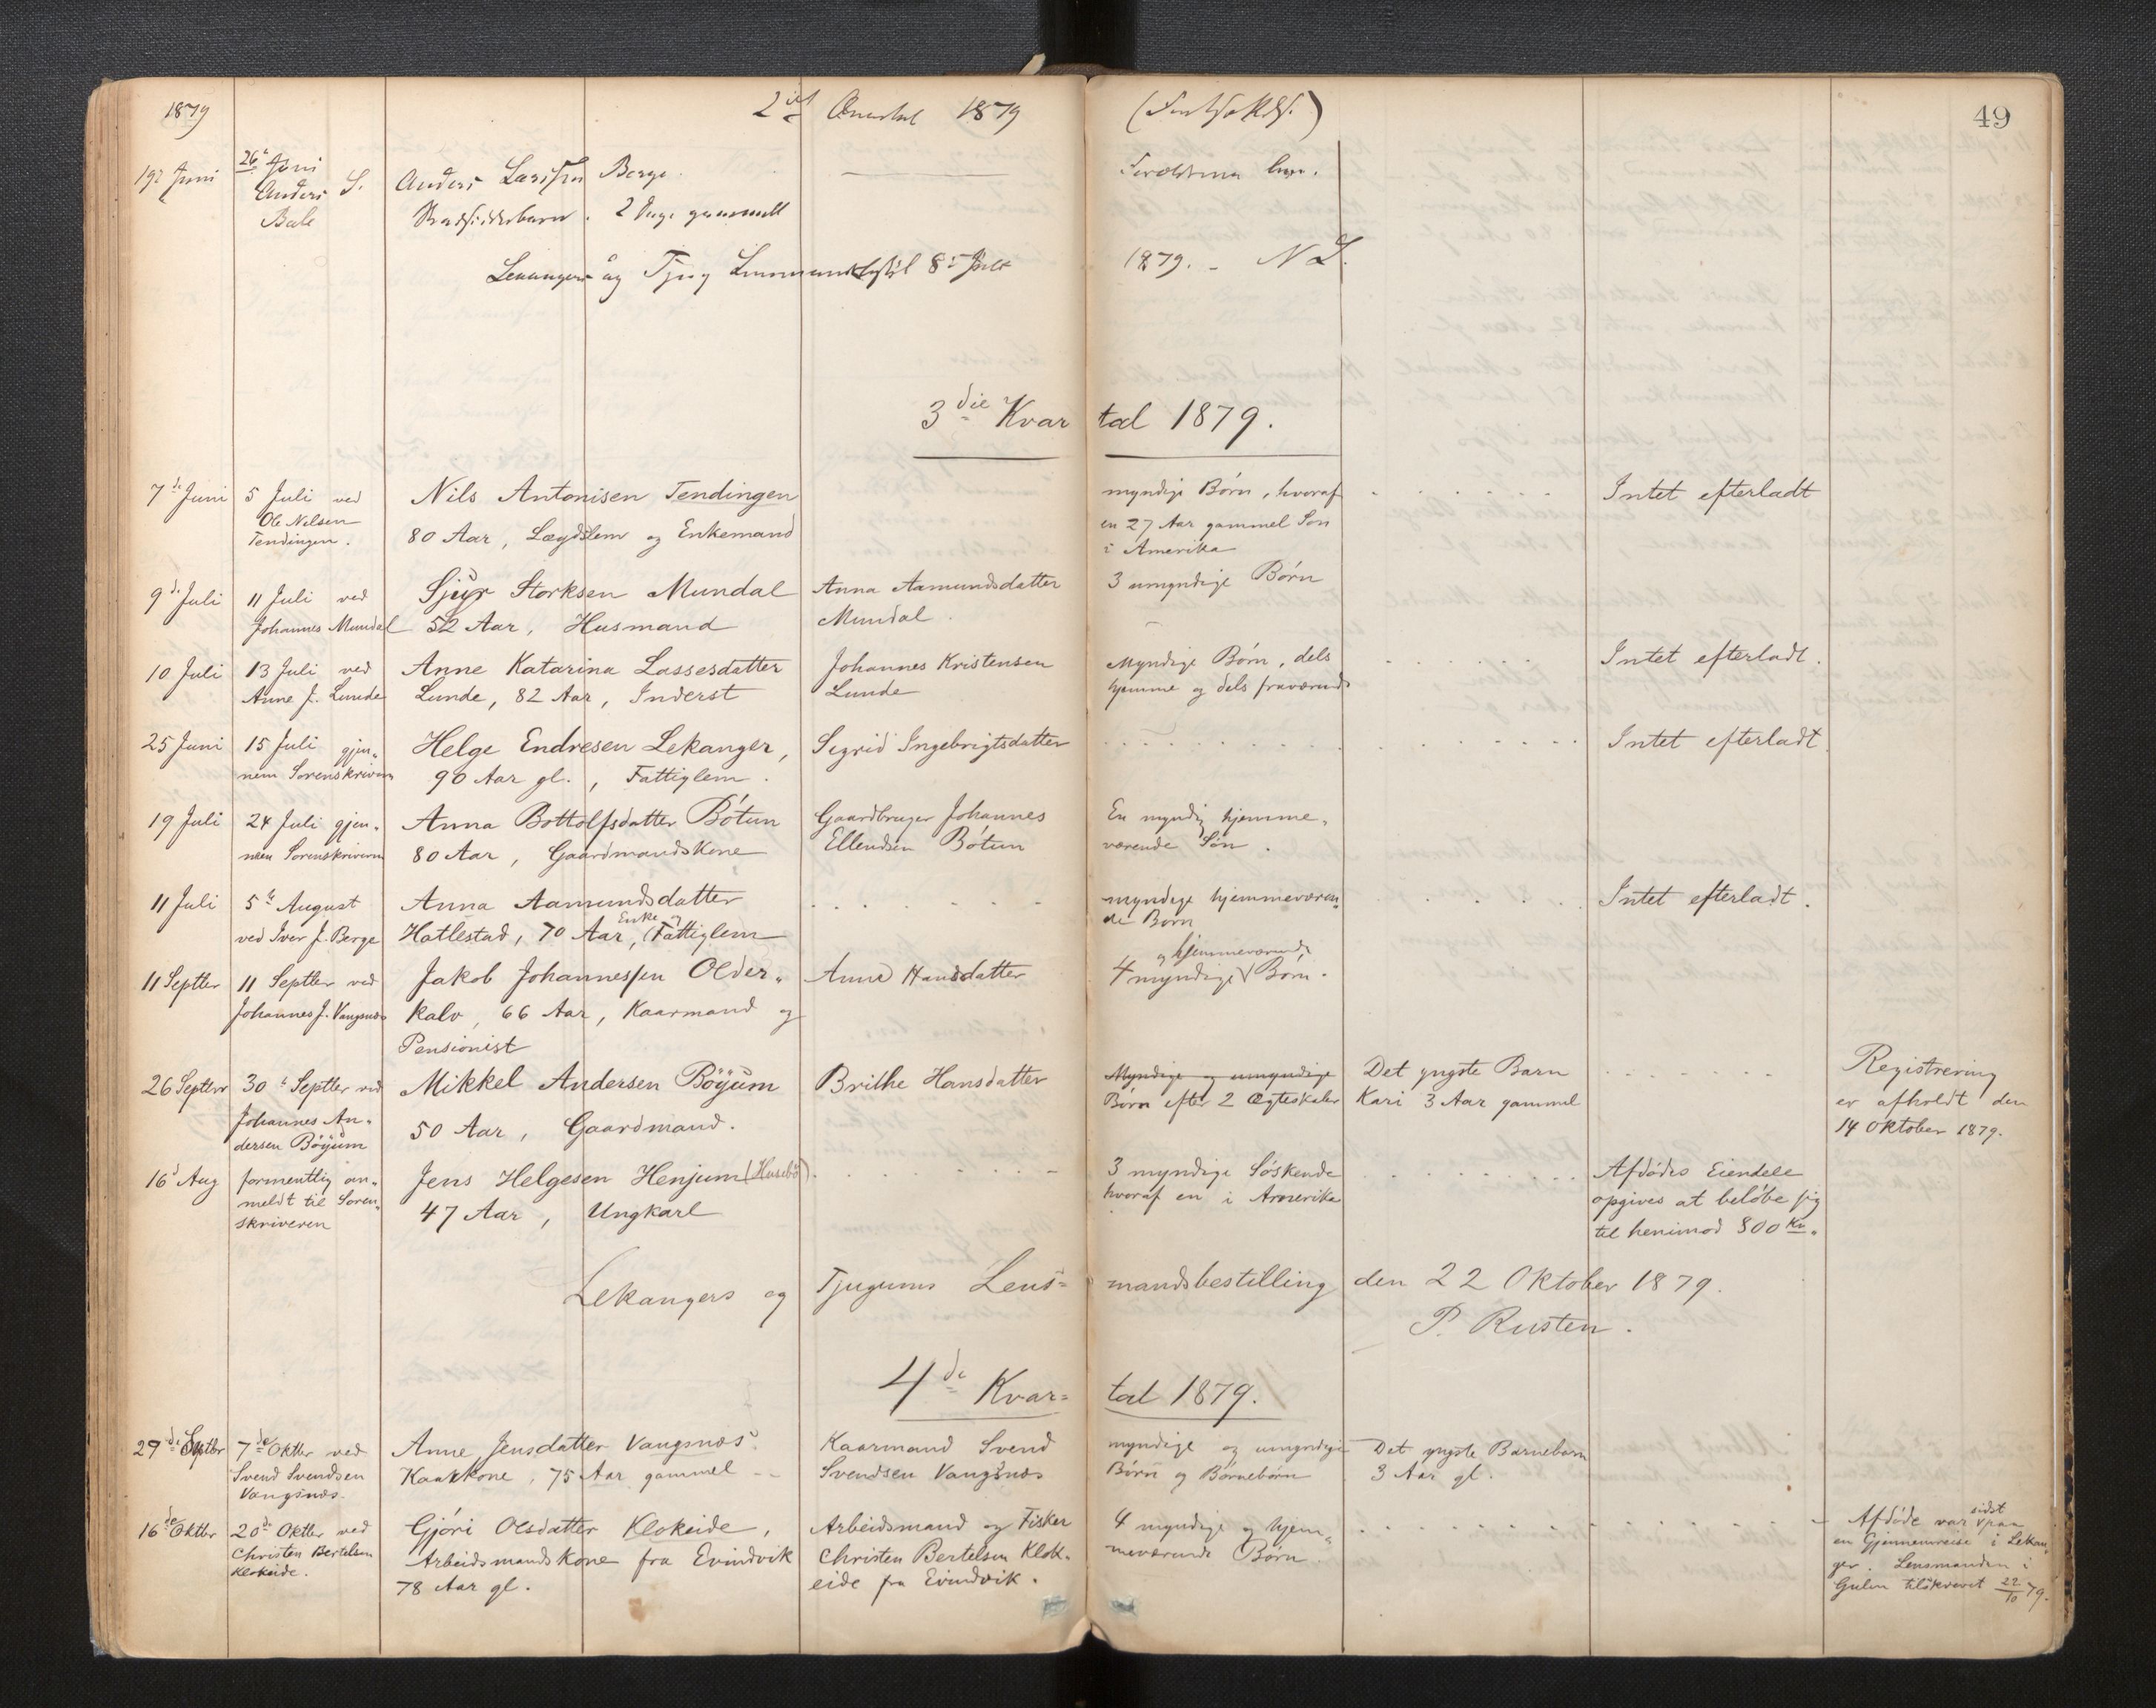 1879
2det Qvartal 1879 (Fortsættelse)
49
19de Juni
26de Juni
Anders S.
Bale
Anders Larssen Berge.
2 Dage gammelt
Forældrene lever.
Lekanger og Tjug. Lensmandsbestil 8de Juli 1879. - N L.
3die Kvartal 1879.
7de Juni
5 Juli ved
Ole Nilsen
Tendingen.
Nils Antonisen Tendingen
80 Aar, Lægdslem og Enkemand
myndige Börn, hvoraf
en 27 Aar gammel Sön
i Amerika
Intet efterladt
9de Juli
11 Juli ved
Johannes Mundal
Sjur Storksen Mundal
52 Aar, Husmand
Anna Aamundsdatter
Mundal.
3 umyndige Börn
10 Juli
13 Juli ved
Anne J. Lunde
Anne Katarina Lassesdatter
Lunde, 82 Aar, Inderst
Johannes Kristensen
Lunde
Myndige Börn, dels
hjemme og dels fraværende
Intet efterladt.
25 Juni
15 Juli gjen„
nem Sorenskriveren
Helge Endresen Lekanger,
90 Aar gl., Fattiglem.
Sigrid Ingebrigtsdatter
Intet efterladt.
19 Juli
24 Juli gjen„
nem Sorenskriveren
Anna Bottolfsdatter Bötun
80 Aar, Gaardmandskone
Gaardbruger Johannes
Ellendsen Bötun
En myndig hjemme„
værende Sön.
11 Juli
5te August
ved Iver J. Berge
Anna Aamundsdatter
Hatlestad, 70 Aar, Enke og Fattiglem
myndige hjemmeværen„
de Börn
Intet efterladt.
11 Septbr
11 Septbr ved
Johannes J. Vangsnæs
Jakob Johannessen Older„
kalv, 66 Aar, Kaarmand og
Pensionist
Anna Hansdatter
4 myndige og hjemmeværende Börn.
26 Septbr
30te Septbr ved
Johannes An„
dersen Böyum
Mikkel Andersen Böyum
50 Aar, Gaardmand.
Brithe Hansdatter
Myndige og umyndige
Börn efter 2 Ægteskaber
Det yngste Barn
Kari 3 Aar gammel
Registrering
er afholdt den
14 Oktober 1879.
16de Aug
formentlig an„
meldt til Soren„
skriveren
Jens Helgesen Henjum (Husebö)
47 Aar, Ungkarl
3 myndige Söskende
hvoraf en i Amerika
Afdödes Eiendele
opgives at belöbe sig
til henimod 800 Kr.
Lekangers og Tjugums Lens=mandsbestilling den 22 Oktober 1879.
P. Rusten.
4de Kvar=tal 1879.
29de Septbr
7de Oktbr ved
Svend Svendsen
Vangsnæs.
Anne Jensdatter Vangsnæs
Kaarkone, 75 Aar gammel
Kaarmand Svend
Svendsen Vangsnæs
myndige og umyndige
Börn og Börnebörn
Det yngste Barnebarn
3 Aar gl.
16de Oktbr
20de Oktbr ved
Christen Bertelsen
Klokeide.
Gjöri Olsdatter Klokeide,
Arbeidsmandskone fra Evindvik
78 Aar gl.
Arbeidsmand og Fisker
Christen Bertelsen Klok„
eide fra Evindvik.
4 myndige og hjem„
meværende Börn.
Afdöde var sidst paa
en Gjennemreise i Lekan„
ger. Lensmanden i
Gulen tilskrevet 22/10 79.